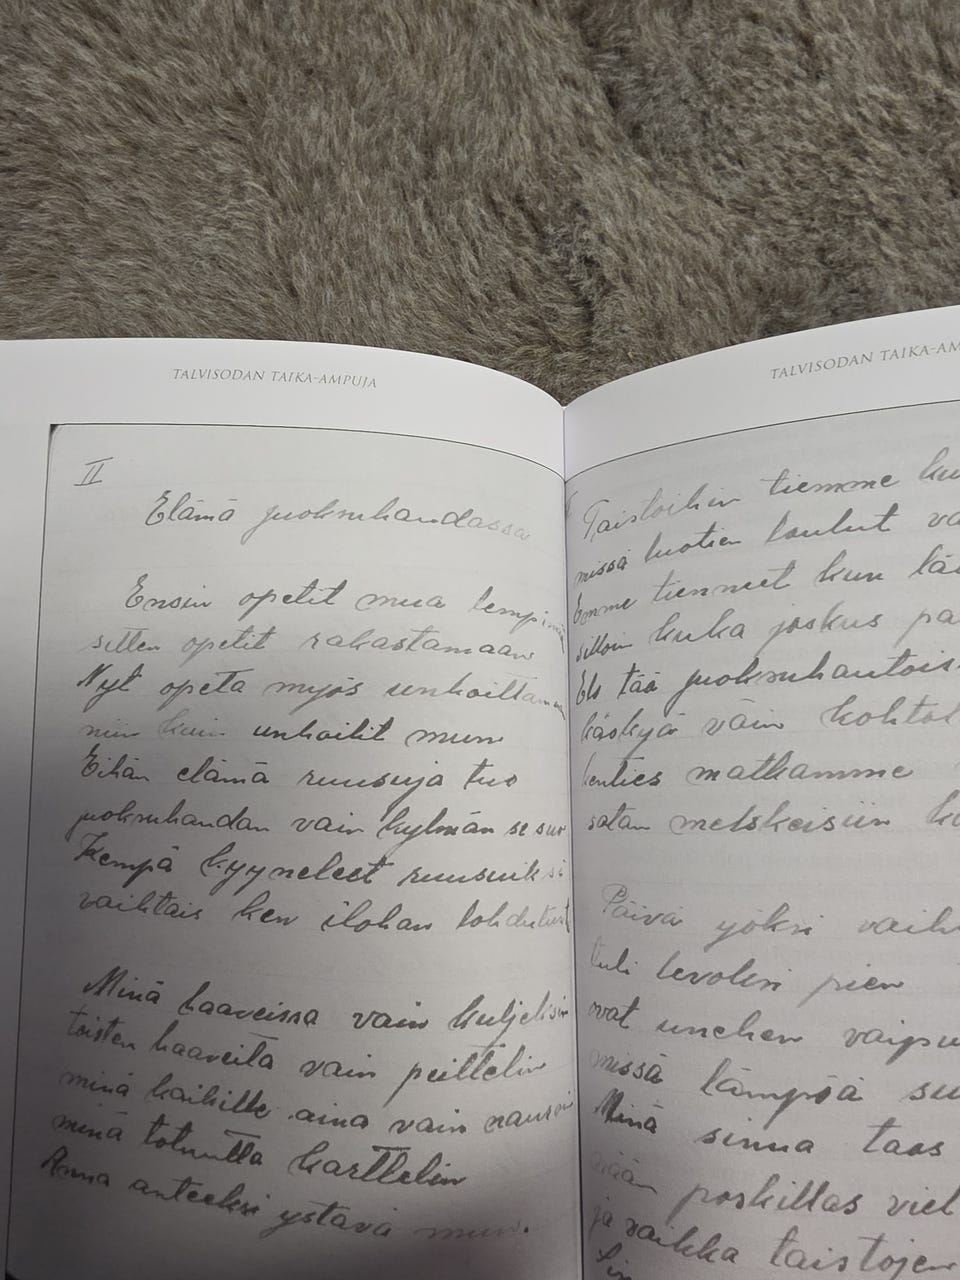 TALVISODAN TAIKA-AMPUJA
II
Elämä juoksuhaudassa
Ensin opetit mua lempimään
sitten opetit rakastamaan
Nyt opeta myös unhoittamaan
niin kuin unhoitit mun
Eihän elämä ruusuja tuo
juoksuhaudan vain kylmän se suo
Kempä kyynelest ruusuiksi
vaihtais ken ilohan lohdutust
Minä haaveissa vain kuljeksin
toisten haaveita vain peittelin
minä kaikille aina vain nauroin
minä totuutta karttelin
Anna anteeksi ystävä mun.
TALVISODAN TAIKA-AM
Taistoihin tiemme ku
missä luotien laulut va
Emme tienneet kun lä
silloin kuka joskus pa
Eli tää juoksuhautois
käskyjä vain kohtal
kenties matkamme
satan melskeisiin ko
Päivä yöksi vaih
tuli levoksi pien
ovat unehen vaipu
missä lämpöä su
Minä sinua taas
poskillas viel
ja vaikka taistojen